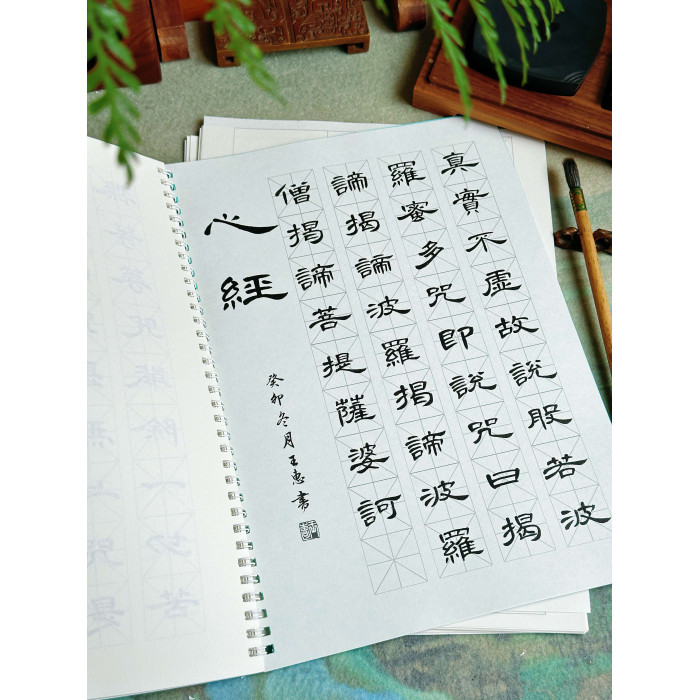 真實不虛故說般若波
羅蜜多咒即說咒曰揭
諦揭諦波羅揭諦波羅
僧揭諦菩提薩婆訶
心經
癸卯冬月王惠書